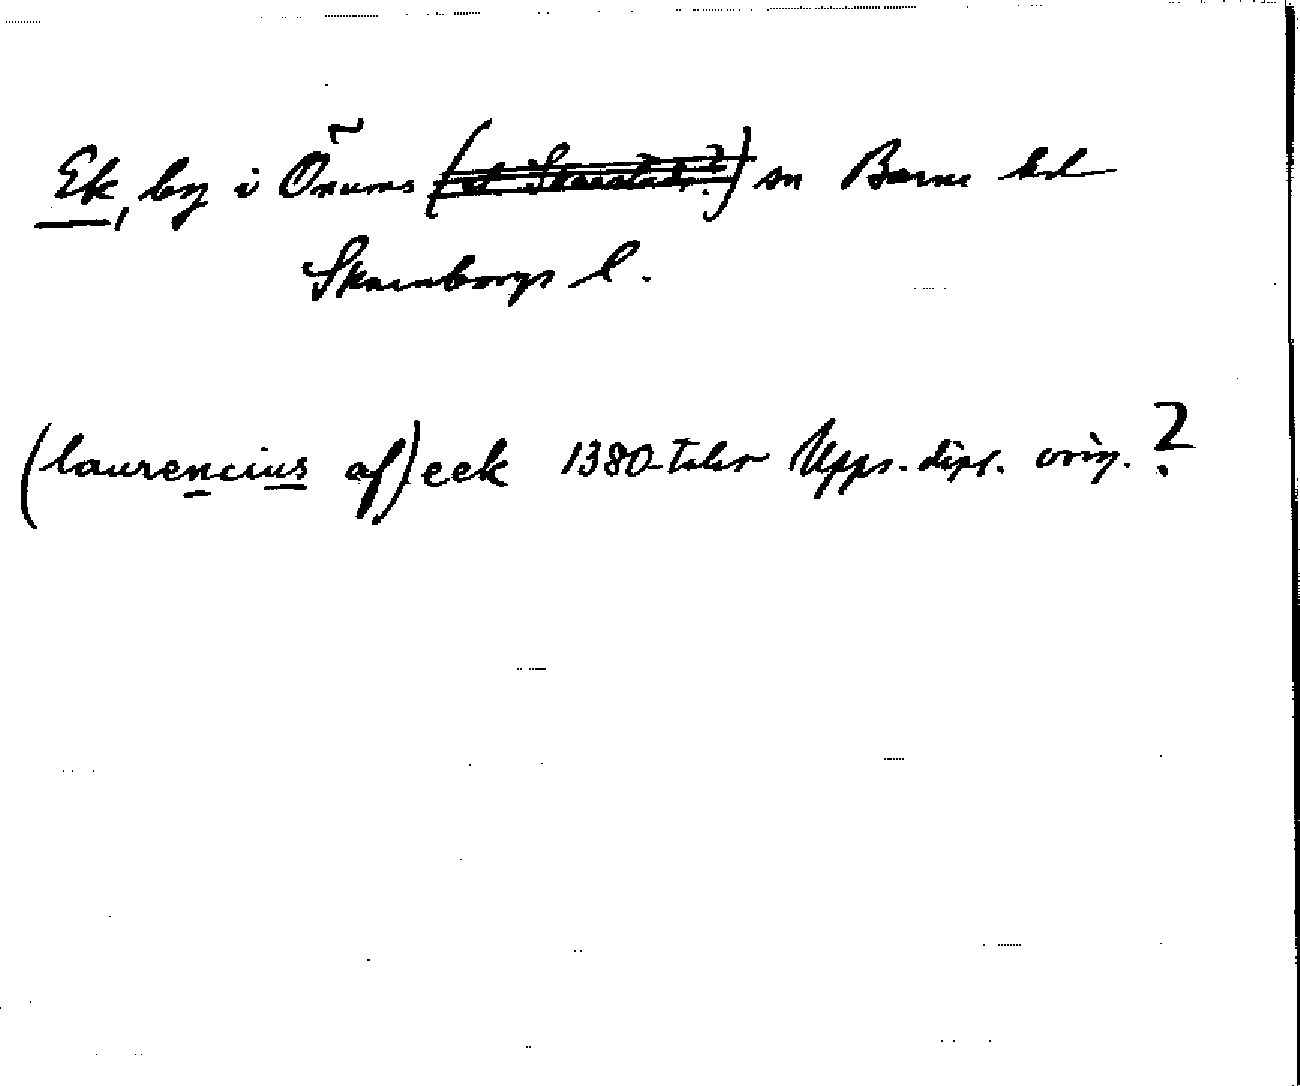 Ek, by i Önums () sn Barne hd
Skaraborgs l.
(laurencius af) eek 1380-talet Upps. dipl. orig. ?